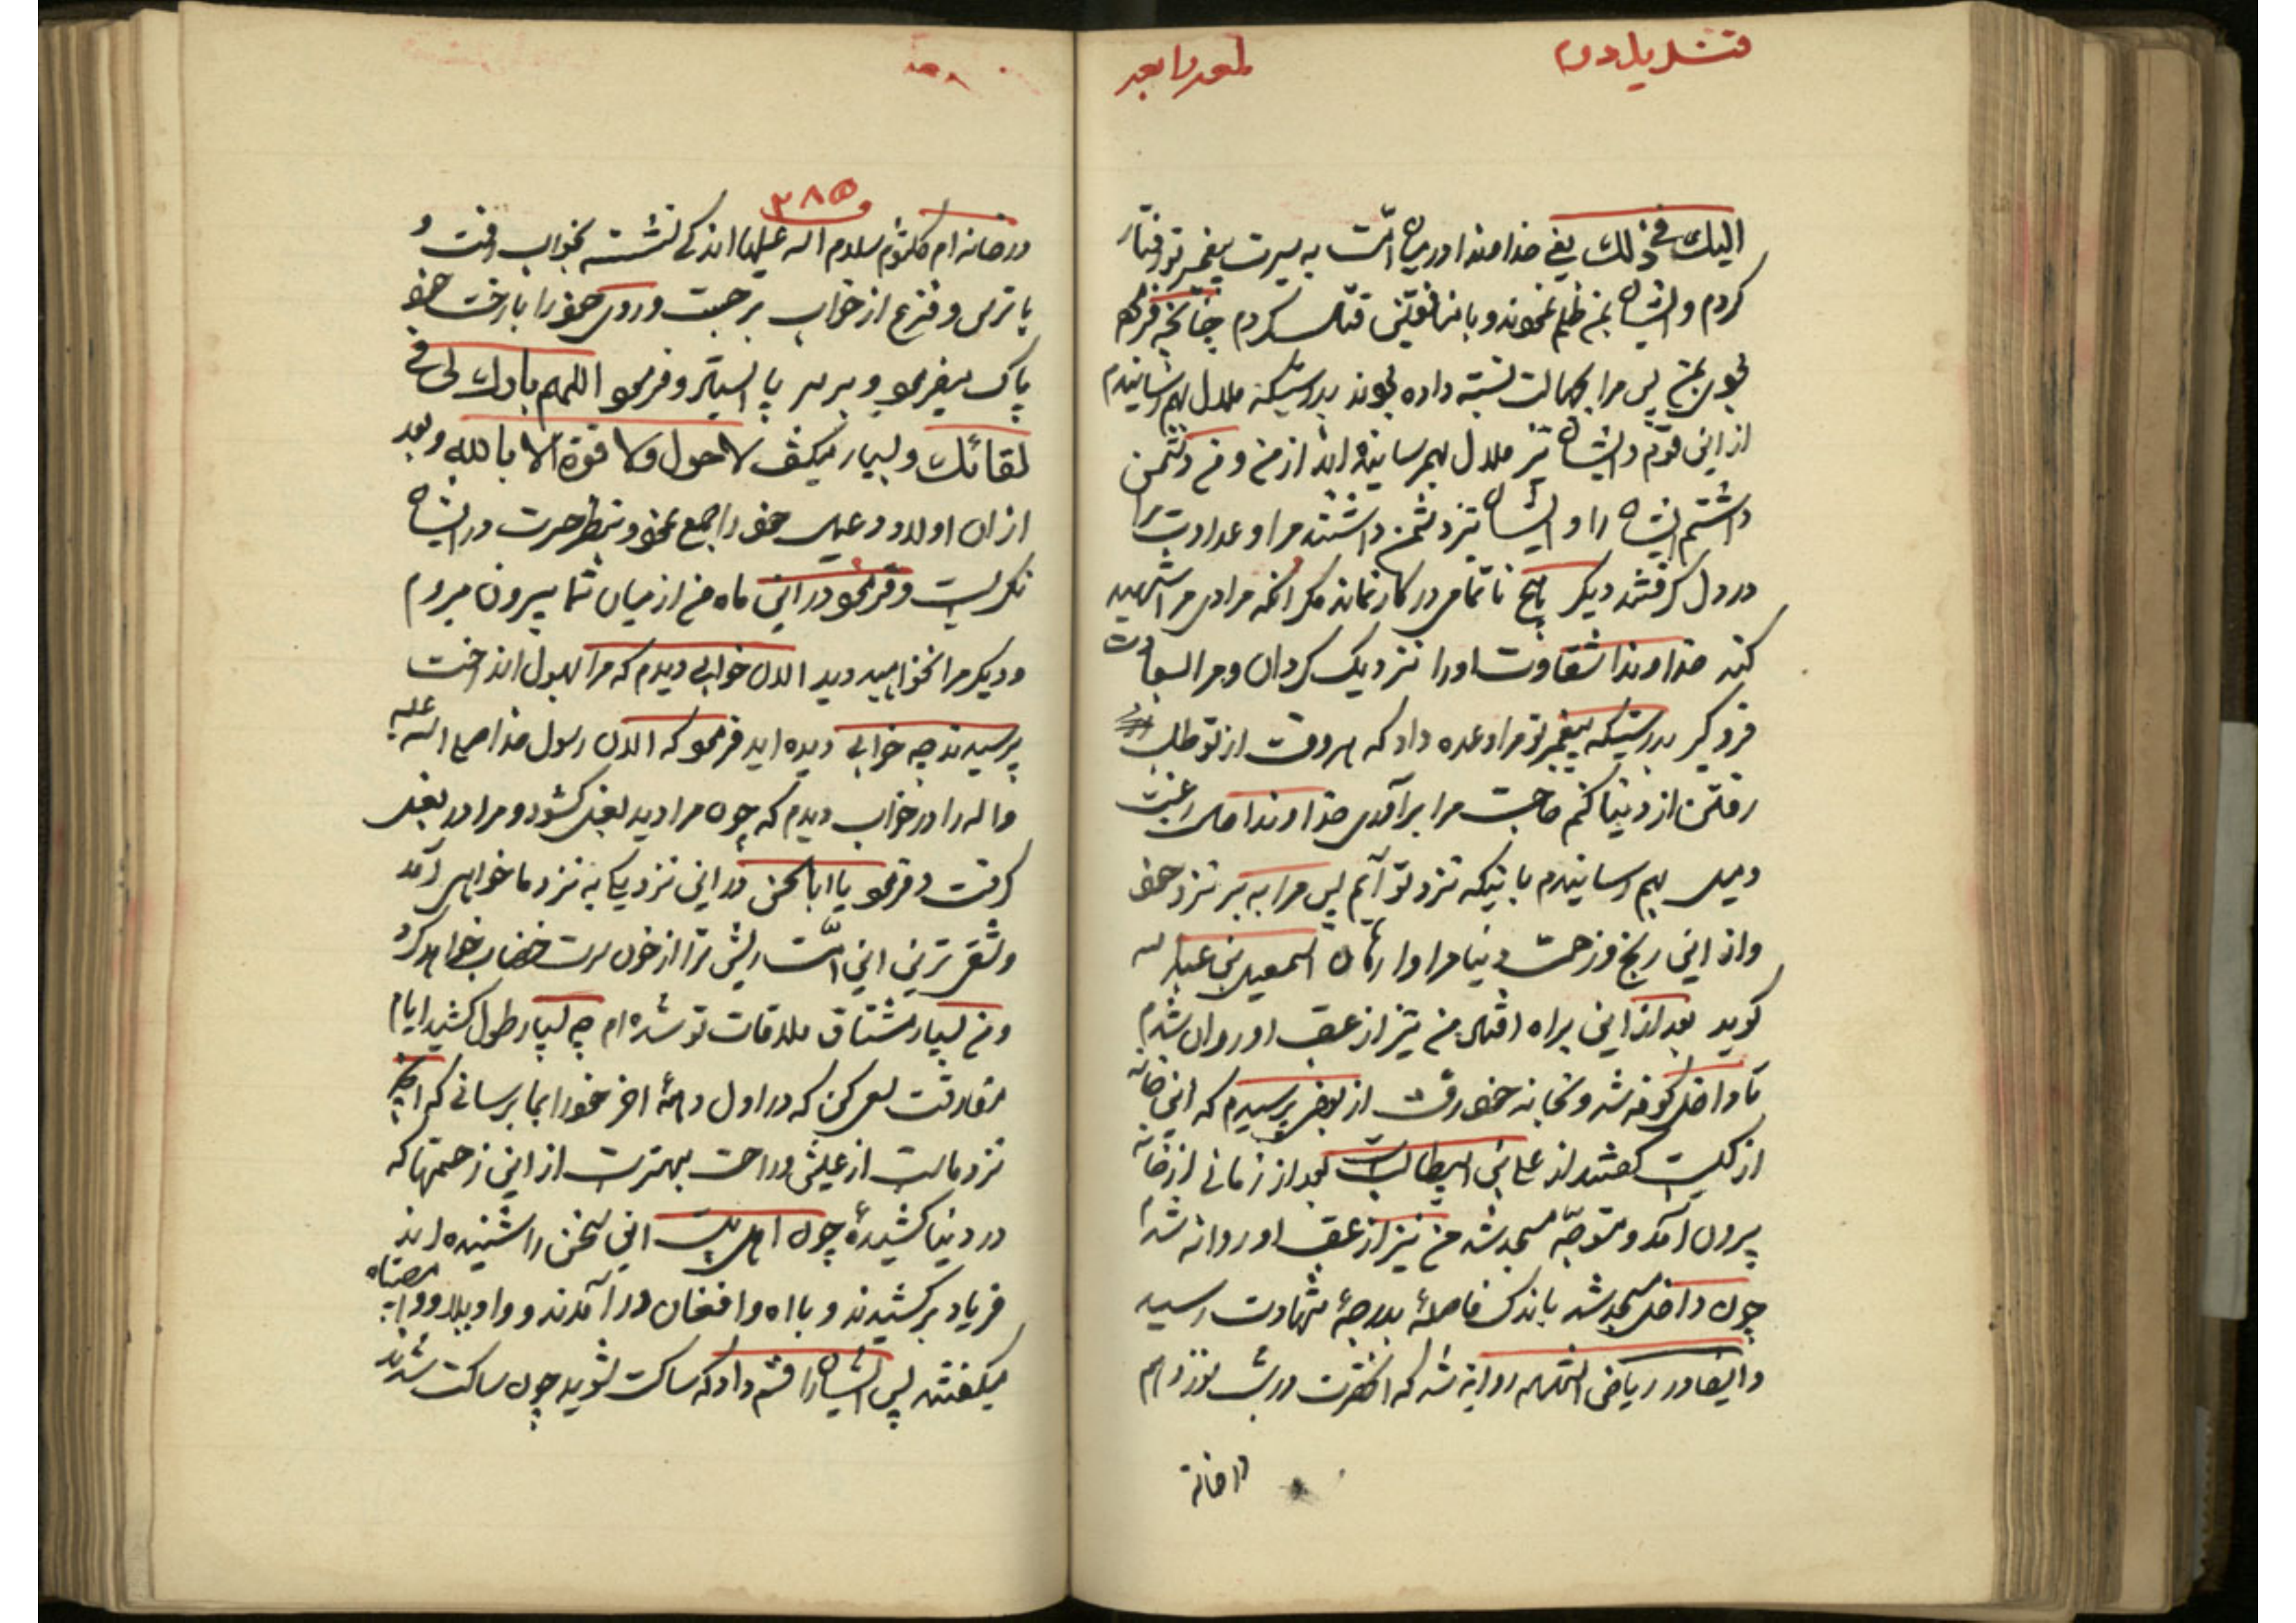 قندیل دوم
لمعه رابعه
الیك فی ذلك یعنی خداوندا در میان امت به سیرت پیغمبر تو رفتار
کردم و ایشان بمن ظلم نمودند و با منافقین قتال کردم چنانچه فرموده
بودی بمن پس مرا بجهالت نسبت داده بودند بدرستیکه ملال بهم رسانیدم
از این قوم و ایشان نیز ملال بهم رسانیده اند از من و من دشمن
داشتم ایشان را و ایشان نیز دشمن داشتند مرا و عداوت مرا
در دل گرفتند دیگر هیچ ناتمامی در کار نمانده مگر آنکه مرادی مرا شهید
کند خداوندا شقاوت او را نزدیک گردان و مرا بسعادت
فرو گیر بدرستیکه پیغمبر تو مرا وعده داد که هر وقت از تو طلب
رفتن از دنیا کنم حاجت مرا برآوری خداوندا من رغبت
و میل بهم رسانیدم باینکه نزد تو آیم پس مرا به بر نزد خود
و از این رنج و زحمت دنیا مرا وارهان اسمعیل بن عبدالله
گوید بعد از این براه افتاد من نیز از عقب او روان شدم
تا داخل کوفه شد و بخانه خود رفت از بعضی پرسیدم که این خانه
از کیست گفتند از علی بن ابیطالب است بعد از زمانی از خانه
بیرون آمد و متوجه مسجد شد من نیز از عقب او روانه شدم
چون داخل مسجد شد باندک فاصلهٔ بدرجهٔ شهادت رسید
و ایضا در ریاض الشهاده روایة شده که آنحضرت در شب نوزدهم
در خانه
۳۸۵
در خانه ام کلثوم سلام الله علیها اندکی نشسته بخواب رفت و
با ترس و فزع از خواب برجست و روی خود را با رخت خود
پاک میفرمود و بر سر پا ایستاد و فرمود اللهم بارك لی فی
لقائك و بسیار میگفت لا حول ولا قوة الا بالله و بعد
از ان اولاد و عیال خود را جمع نمود و بنظر حسرت در ایشان
نگریست و فرمود در این ماه من از میان شما بیرون میروم
و دیگر مرا نخواهید دید الان خوابی دیدم که مرا بهول انداخت
پرسیدند چه خوابی دیده اید فرمود که الان رسول خدا صلی الله علیه
و اله را در خواب دیدم که چون مرا دید بغل کشود و مرا در بغل
گرفت و فرمود یا ابا الحسن در این نزدیکی به نزد ما خواهی آمد
و شقی ترین این امت ریش ترا از خون سرت خضاب خواهد کرد
و من بسیار مشتاق ملاقات تو شده ام چه بسیار طول کشید ایام
مفارقت سعی کن که در اول دههٔ اخر خود را بما برسانی که انچه
نزد ماست از عیش و راحت بهتر است از این زحمتها که
در دنیا کشیدهٔ چون اهل بیت این سخن را شنیده اند
فریاد برکشیدند و با اه و افغان در آمدند و واویلا و وا مصیبتاه
میگفتند پس ایشان را قسم داد که ساکت شوید چون ساکت شدند